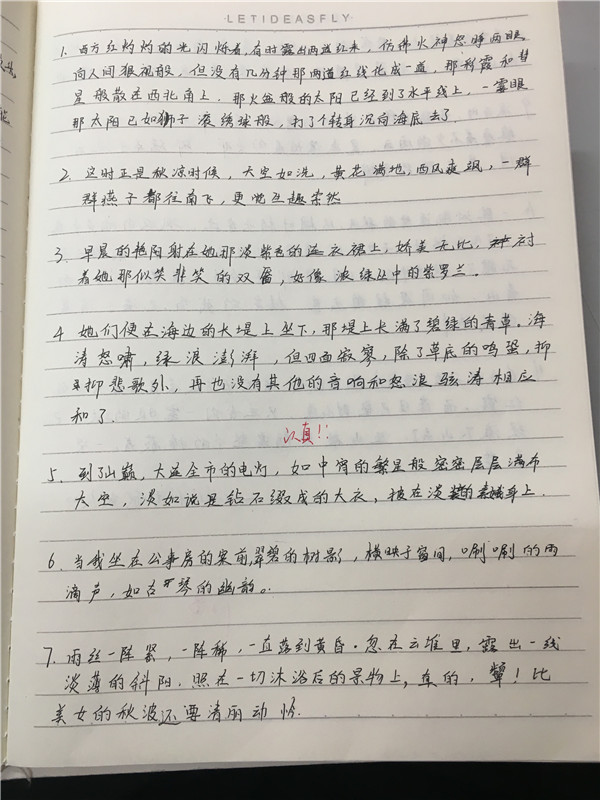 LETIDEASFLY
1. 西方红灼灼的光闪烁着,有时露出两道红来,仿佛火神怒睁两眼
向人间狠视般,但没有几分钟那两道红线化成一道,那彩霞和彗
星般散在西北角上,那火盆般的太阳已经到了水平线上,一霎眼
那太阳已如狮子滚绣球般,打了个转身沉向海底去了.
2. 这时正是秋凉时候,天空如洗,黄花满地,西风爽飒,一群
群燕子都往南飞,更觉生趣索然
3. 早晨的艳阳射在她那淡紫色的连衣裙上,娇美无比,衬
着她那似笑非笑的双靥,好像浓绿丛中的紫罗兰。
4 她们便在海边的大堤上坐下,那堤上长满了碧绿的青草。海
涛怒啸,绿浪澎湃,但四面寂寥,除了草底的鸣蛩,抑
抑悲歌外,再也没有其他的音响和怒浪骇涛相应
和了.
认真!!
5. 到了山巅,大益全市的电灯,如中宵的繁星般密密层层满布
太空,淡如说是钻石缀成的大衣,披在淡装的素娥身上.
6. 当我坐在公事房的案前,翠碧的树影,横映于窗间,唰唰的雨
滴声,如古琴的幽韵。
7. 雨丝一阵紧,一阵稀,一直落到黄昏.忽在云堆里,露出一线
淡薄的斜阳.照在一切沐浴后的景物上,真的,颦!比
美女的秋波还要清丽动怜.